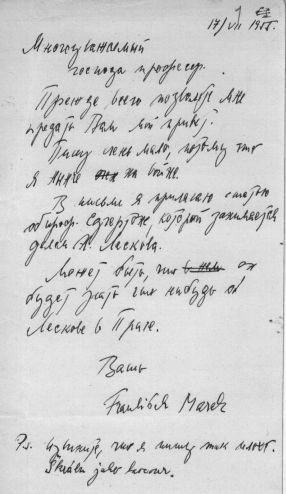 17/VII 1955.
Многоуважаемый
господа профессор.
Прежде всего позвольте мне
предать Вам мой привет.
Пишу очень мало, потому что
я
на войне.
В письме я прилагаю статью
о который занимается
делом А. Лескова.
Может быть, что он
будет знать что нибудь об
Лескове в
Вашь
František Marek
Ps. извините, что я пишу так плохо.
Škrábu jako kocour.